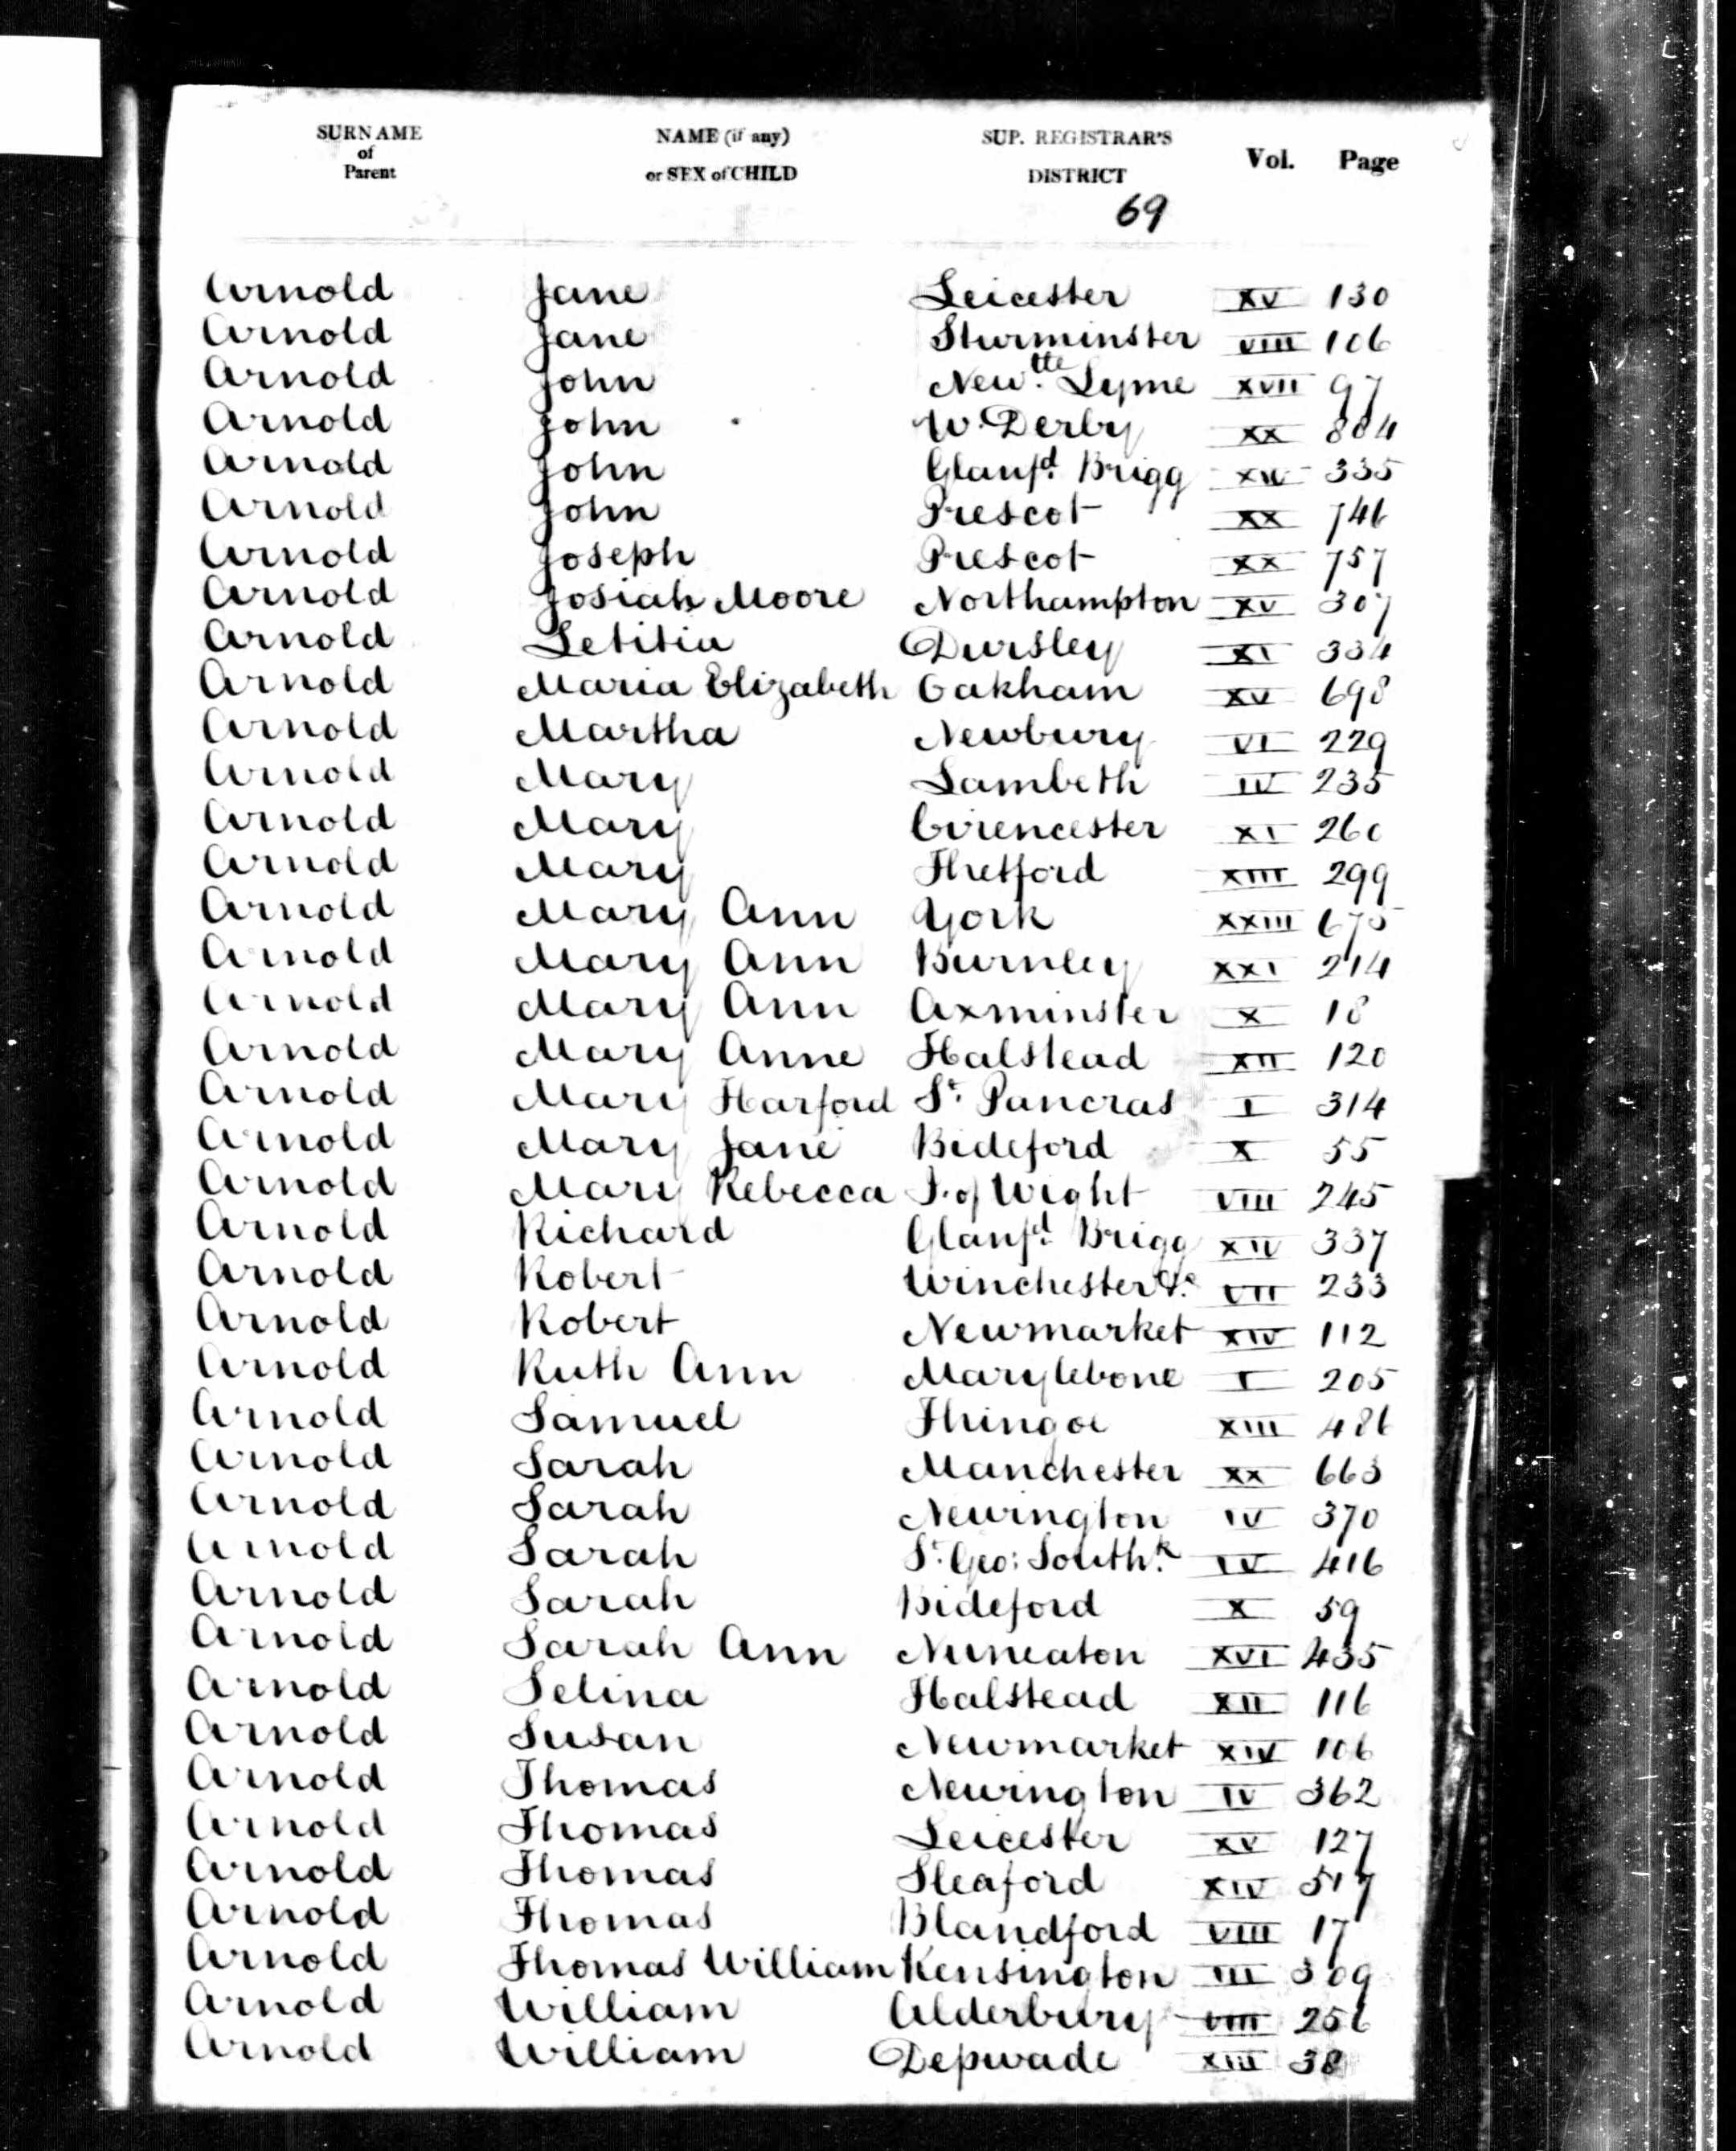 SURNAME NAME (if any) SUP. REGISTRAR'S Vol. Page
of
Parent or SEX of CHILD DISTRICT
69
Arnold Jane Leicester XV 130
Arnold Jane Sturminster VIII 106
Arnold John New.tte Lyme XVII 97
Arnold John W. Derby XX 884
Arnold John Glanfd. Brigg XIV 335
Arnold John Prescot XX 746
Arnold Joseph Prescot XX 757
Arnold Josiah Moore Northampton XV 307
Arnold Letitia Dursley XI 334
Arnold Maria Elizabeth Oakham XV 698
Arnold Martha Newbury VI 229
Arnold Mary Lambeth IV 235
Arnold Mary Cirencester XI 260
Arnold Mary Thetford XIII 299
Arnold Mary Ann York XXIII 675
Arnold Mary Ann Burnley XXI 214
Arnold Mary Ann Axminster X 18
Arnold Mary Anne Halstead XII 120
Arnold Mary Harford St. Pancras I 314
Arnold Mary Jane Bideford X 55
Arnold Mary Rebecca I. of Wight VIII 245
Arnold Richard Glanfd. Brigg XIV 337
Arnold Robert Winchester &c. VII 233
Arnold Robert Newmarket XIV 112
Arnold Ruth Ann Marylebone I 205
Arnold Samuel Thingoe XIII 486
Arnold Sarah Manchester XX 663
Arnold Sarah Newington IV 370
Arnold Sarah St. Geo: Southk. IV 416
Arnold Sarah Bideford X 59
Arnold Sarah Ann Nuneaton XVI 435
Arnold Selina Halstead XII 116
Arnold Susan Newmarket XIV 106
Arnold Thomas Newington IV 362
Arnold Thomas Leicester XV 127
Arnold Thomas Sleaford XIV 517
Arnold Thomas Blandford VIII 17
Arnold Thomas William Kensington III 309
Arnold William Alderbury VIII 256
Arnold William Depwade XIII 38